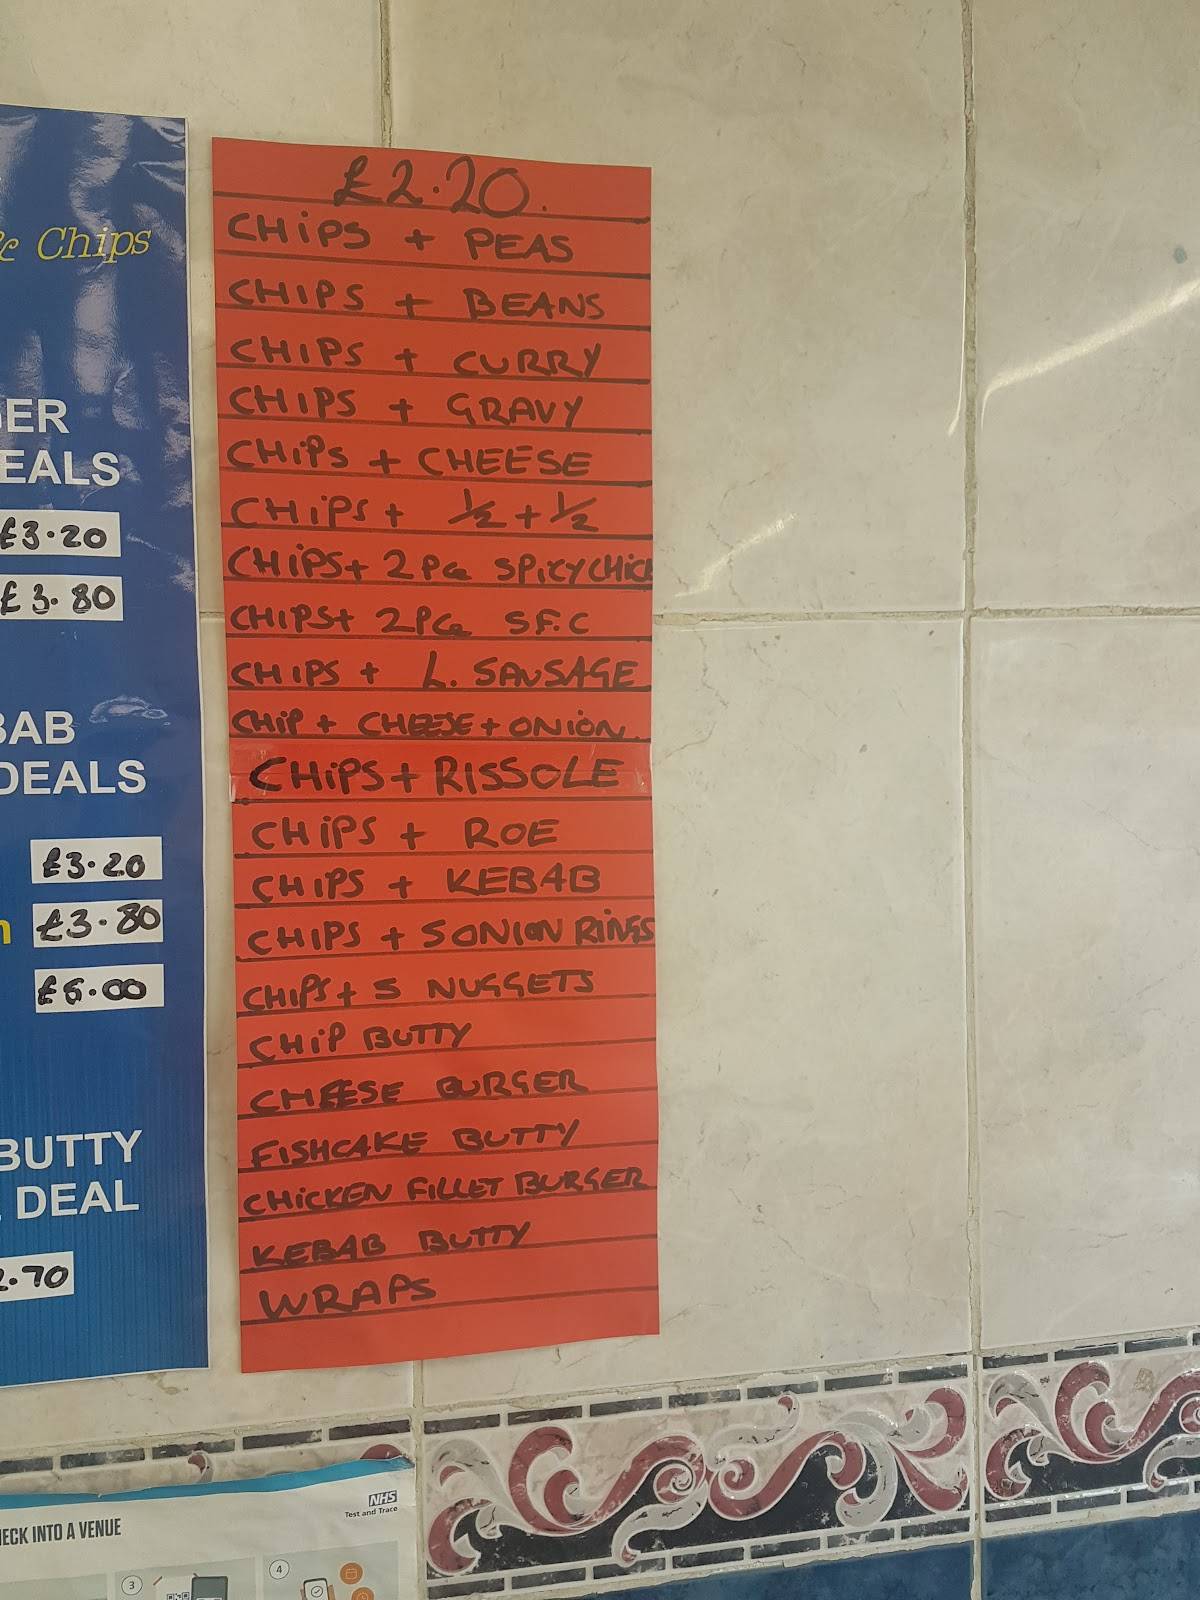 & Chips
EALS
£3.20
£3.80
DEALS
£3.20
£3.80
£6.00
BUTTY
DEAL
.70
£2.20.
CHIPS + PEAS
CHIPS + BEANS
CHIPS + CURRY
CHIPS + GRAVY
CHIPS + CHEESE
CHIPS + ½ + ½
CHIPS + 2 PCE SPICY CHICK
CHIPS + 2 PCE S.F.C
CHIPS + L. SAUSAGE
CHIP + CHEESE + ONION
CHIPS + RISSOLE
CHIPS + ROE
CHIPS + KEBAB
CHIPS + 5 ONION RINGS
CHIPS + 5 NUGGETS
CHIP BUTTY
CHEESE BURGER
FISHCAKE BUTTY
CHICKEN FILLET BURGER
KEBAB BUTTY
WRAPS
NHS
Test and Trace
INTO A VENUE
3
4